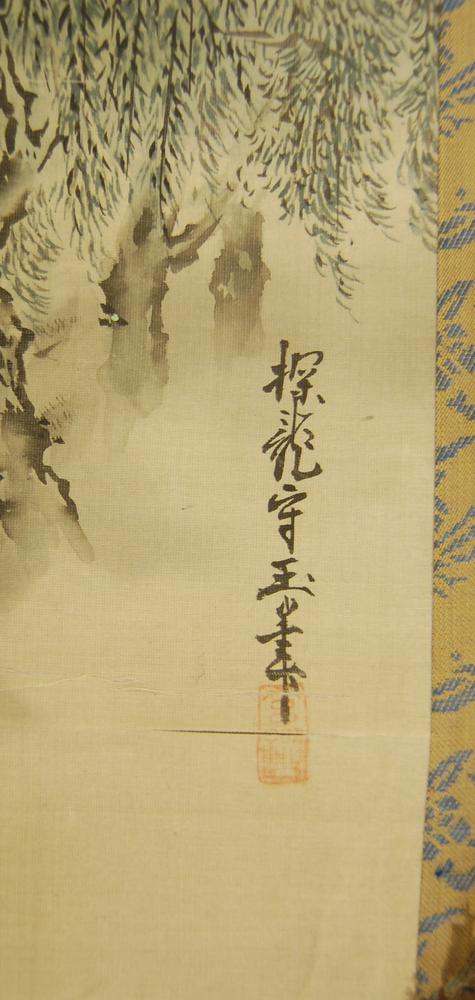 探龍守玉筆